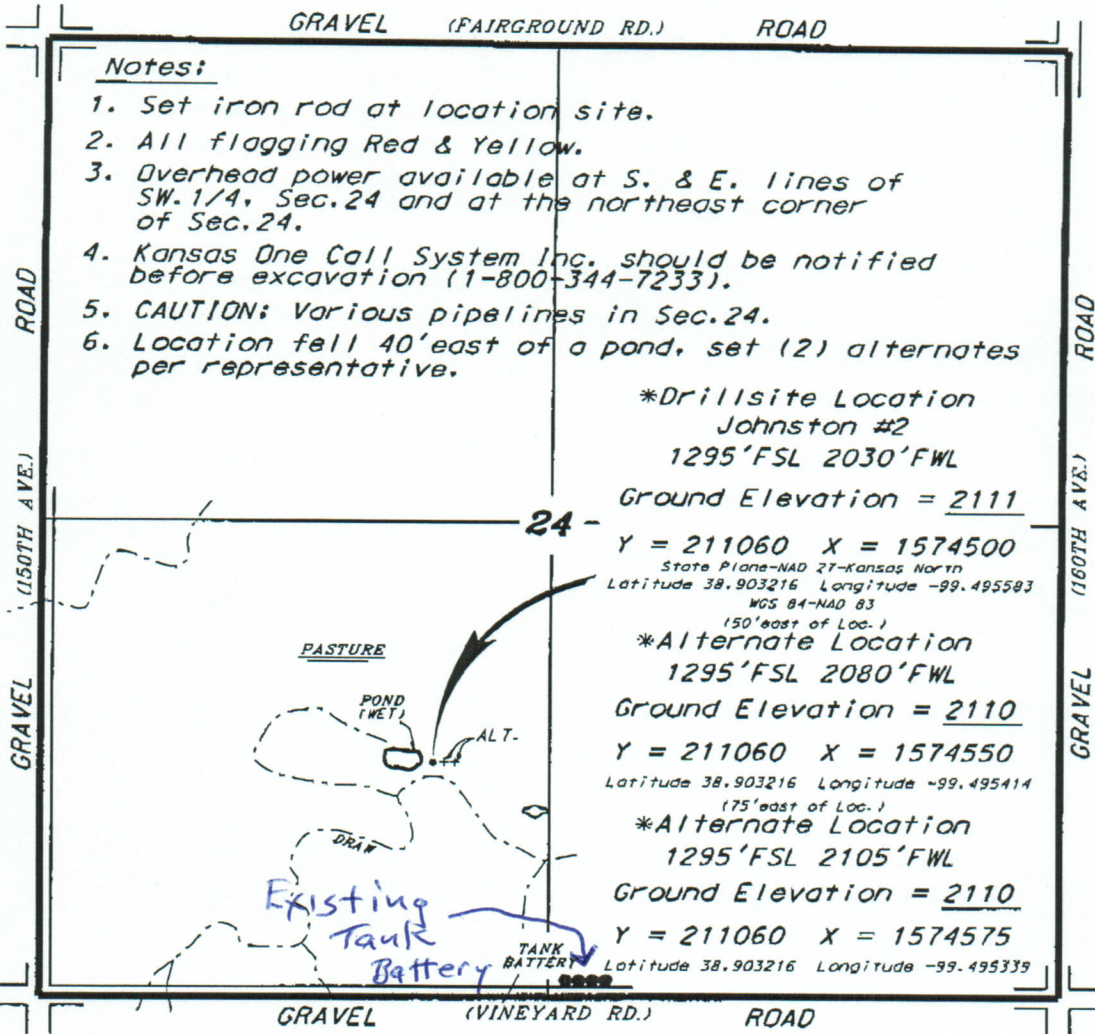 GRAVEL (FAIRGROUND RD.) ROAD
Notes:
1. Set iron rod at location site.
2. All flagging Red & Yellow.
3. Overhead power available at S. & E. lines of
SW.1/4, Sec.24 and at the northeast corner
of Sec.24.
4. Kansas One Call System Inc. should be notified
before excavation (1-800-344-7233).
5. CAUTION: Various pipelines in Sec.24.
6. Location fell 40'east of a pond, set (2) alternates
per representative.
GRAVEL (150TH AVE.) ROAD
GRAVEL (160TH AVE.) ROAD
*Drillsite Location
Johnston #2
1295'FSL 2030'FWL
Ground Elevation = 2111
24
Y = 211060 X = 1574500
State Plane-NAD 27-Kansas North
Latitude 38.903216 Longitude -99.495583
WGS 84-NAD 83
(50'east of Loc.)
*Alternate Location
1295'FSL 2080'FWL
Ground Elevation = 2110
Y = 211060 X = 1574550
Latitude 38.903216 Longitude -99.495414
(75'east of Loc.)
*Alternate Location
1295'FSL 2105'FWL
Ground Elevation = 2110
Y = 211060 X = 1574575
Latitude 38.903216 Longitude -99.495339
PASTURE
POND
(WET)
ALT.
DRAW
Existing
Tank
Battery
TANK
BATTERY
GRAVEL (VINEYARD RD.) ROAD